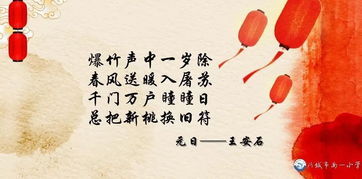 爆竹声中一岁除
春风送暖入屠苏
千门万户瞳瞳日
总把新桃换旧符
元日——王安石